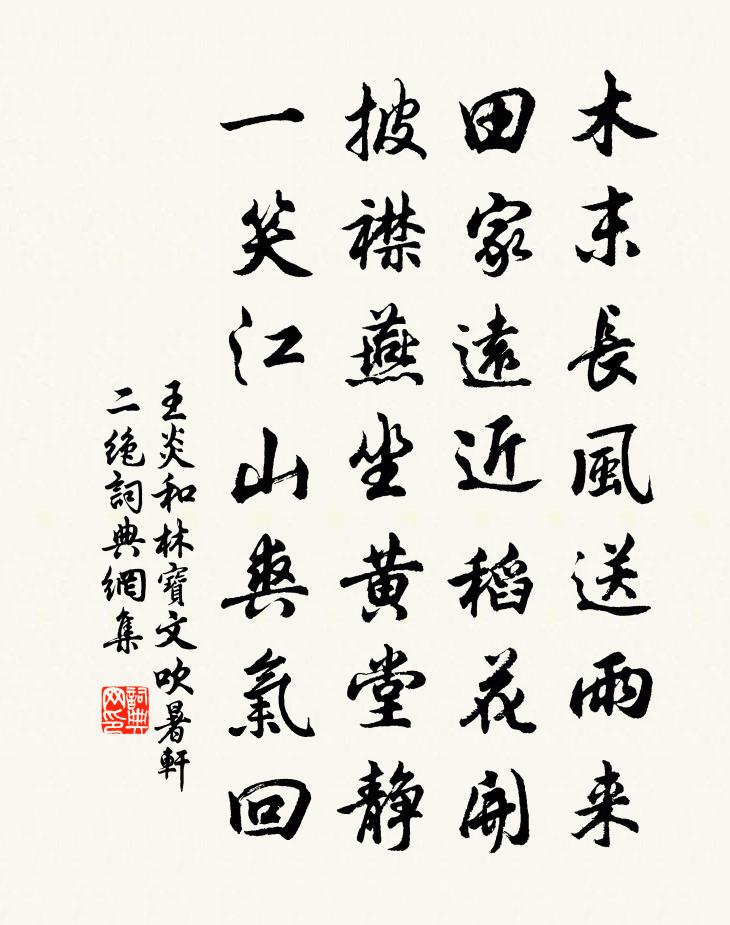 木末長風送雨来
田家遠近稻花開
披襟燕坐黄堂静
一笑江山爽氣回
王炎和林寶文吹暑軒
二絶詞典網集
詞典网印